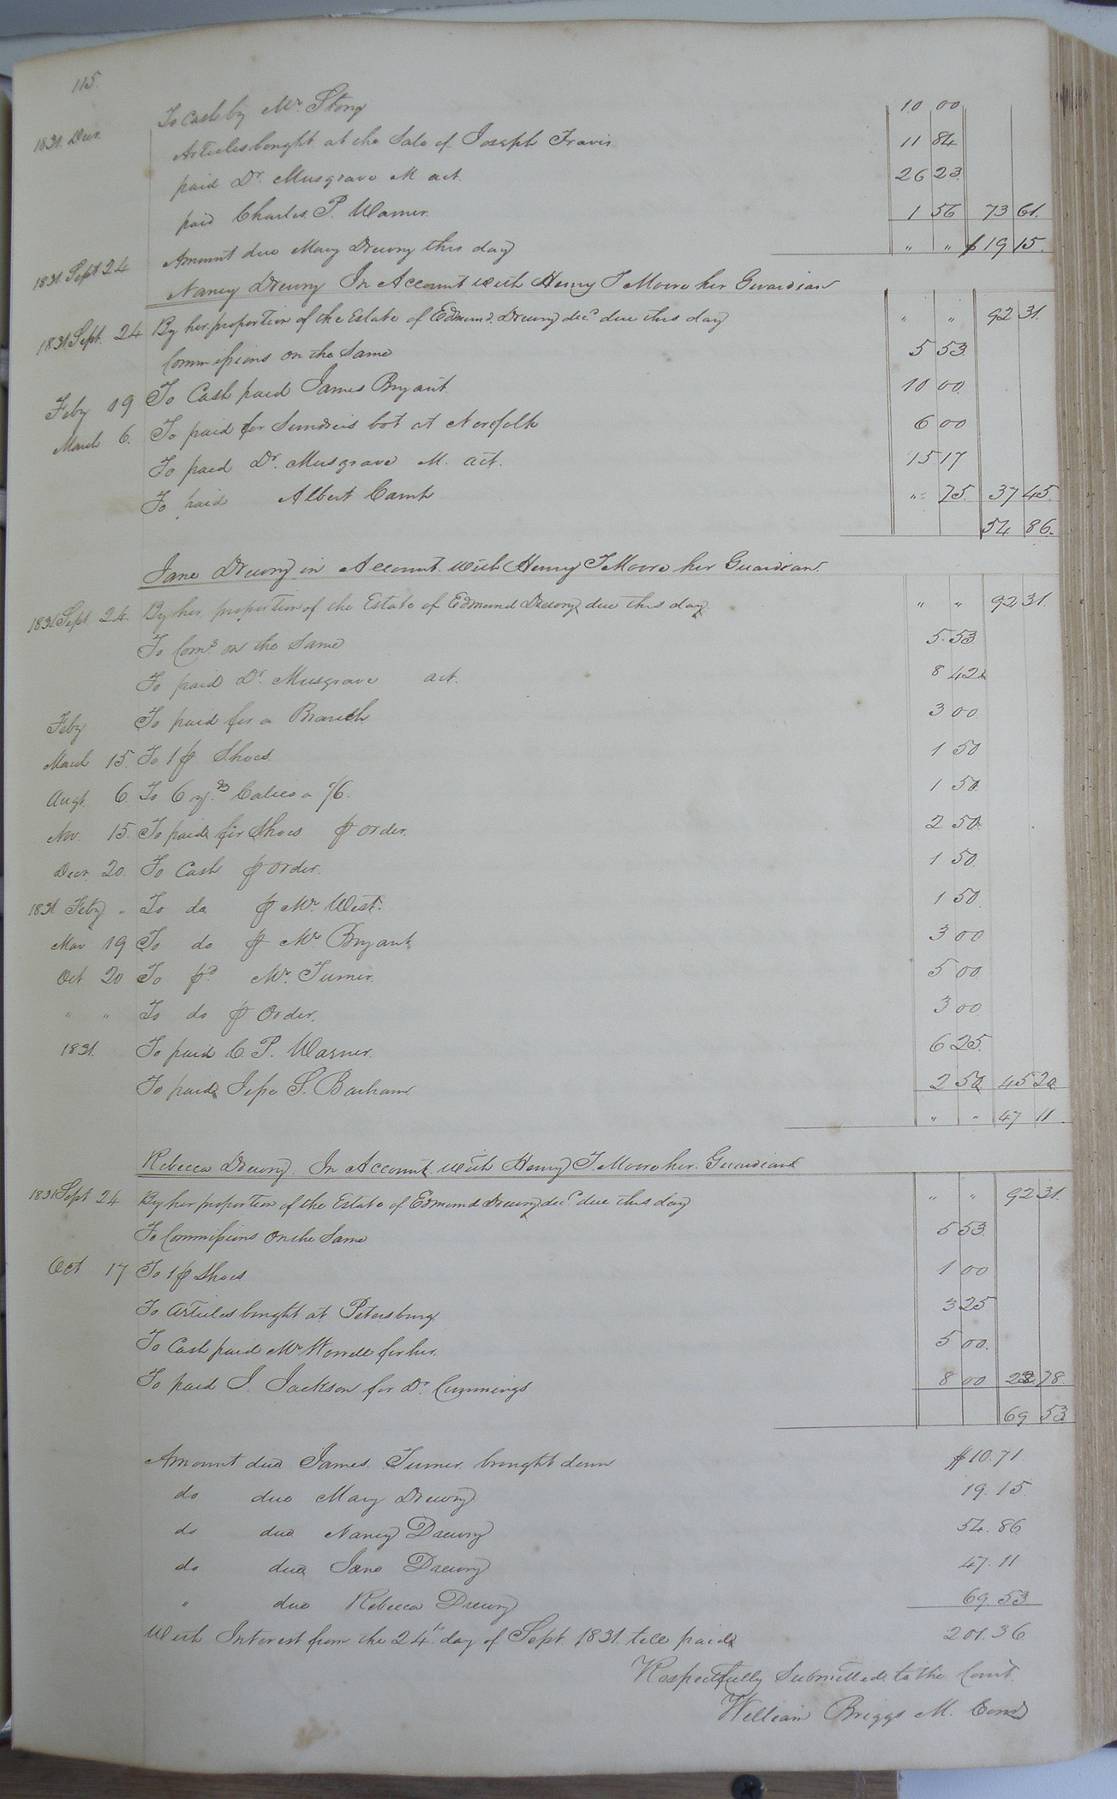 115
To cash by Mr. Story 10 00
1831. Decr. Articles bought at the Sale of Joseph Travis 11 84
paid Dr. Musgrave M act. 26 23
paid Charles P. Warner. 1 56 73 61.
1831 Sept 24 Amount due Mary Drewry this day " " $19 15.
Nancy Drewry In Account with Henry T Moore her Guardian
1831 Sept. 24 By her proportion of the Estate of Edmund Drewry decd due this day " " 92 31.
Commissions on the Same 5 53
Feby 19 To Cash paid James Bryant 10 00
March 6. To paid for Sundries bot at Norfolk 6 00
To paid Dr. Musgrave M. act. 15 17
To paid Albert " 75. 37 45.
54 86.
Jane Drewry in Account with Henry T Moore her Guardian.
1831 Sept 24. By her proportion of the Estate of Edmund Drewry due this day " " 92 31.
To Coms. on the Same 5.53
To paid Dr. Musgrave act. 8 42
Feby To paid for a 3 00
March 15. To 1 p Shoes. 1 50
Augt. 6. To 6 yds Calico a 1/6. 1 50
Nov. 15. To paid for Shoes p order. 2 50
Decr. 20. To Cash p order. 1 50.
1831 Feby " To do p Mr. West. 1 50
Mar 19 To do p Mr Bryant 3 00
Oct 20 To pd Mr. Turner. 5 00
" " To do p Order. 3 00
1831. To paid C. P. Warner. 6 25.
To paid Jesse S. Barham 2 50 45 20
" " 47 11
Rebecca Drewry. In Account with Henry T. Moore her Guardian
1831 Sept 24 By her proportion of the Estate of Edmund Drewry decd due this day " " 92 31.
To Commissions on the Same 5 53.
Oct 17 To 1 p Shoes 1 00
To articles bought at Petersburg 3 25
To Cash paid Mr Worrell for her. 5 00.
To paid J. Jackson for Dr. Cummings 8 00 22 78.
69 53
Amount due James Turner brought down $10.71
do due Mary Drewry 19.15
do due Nancy Drewry 54.86
do due Jane Drewry 47.11
" due Rebecca Drewry 69.53
With Interest from the 24th day of Sept. 1831. till paid 201.36
Respectfully Submitted to the Court.
William Briggs M. Com